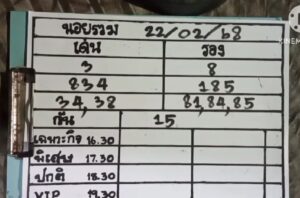 นอยรวม 22/02/68
เด่น รอง
3 8
834 185
34,38 81,84,85
กัน 15
เฉพาะกิจ 16.30
พิเศษ 17.30
ปกติ 18.30
VIP 19.30